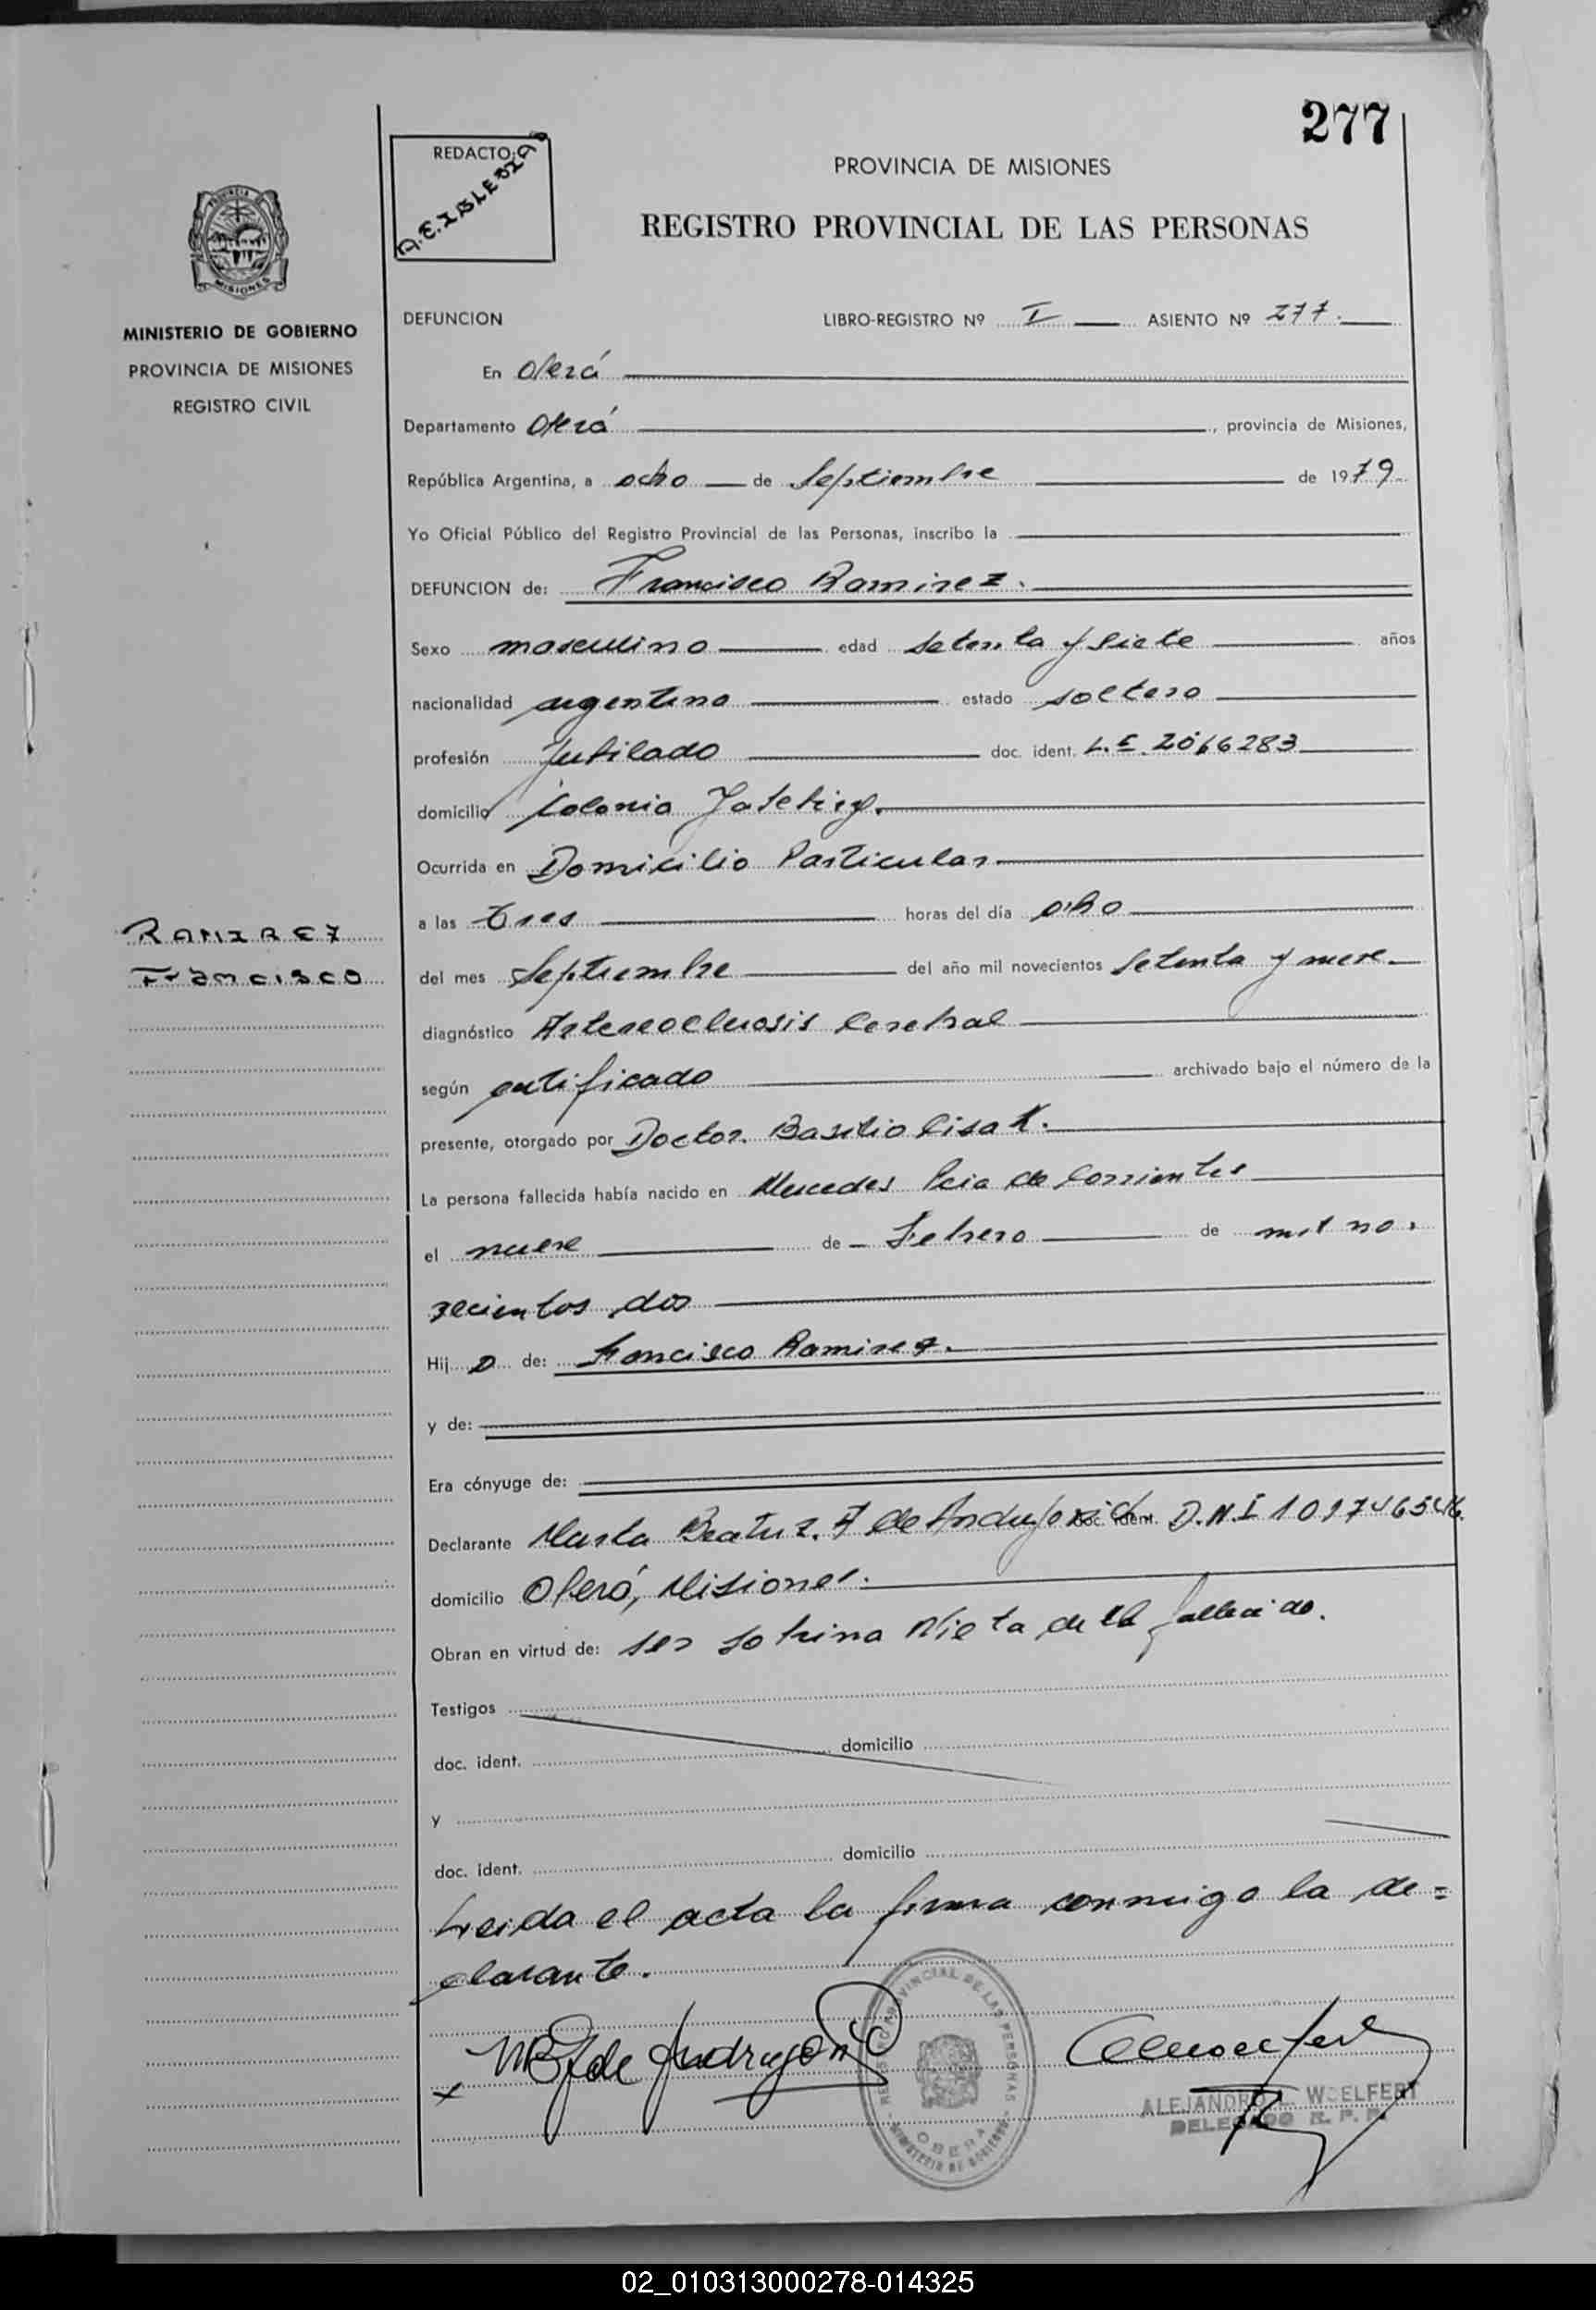 277
REDACTO:
PROVINCIA DE MISIONES
REGISTRO PROVINCIAL DE LAS PERSONAS
MISIONES
MINISTERIO DE GOBIERNO
PROVINCIA DE MISIONES
REGISTRO CIVIL
DEFUNCION LIBRO-REGISTRO Nº I ASIENTO Nº 277.
En Oberá
Departamento Oberá, provincia de Misiones,
República Argentina, a ocho de Septiembre de 1979
Yo Oficial Público del Registro Provincial de las Personas, inscribo la
DEFUNCION de: Francisco Ramirez.
Sexo masculino edad setenta y siete años
nacionalidad argentino estado soltero
profesión Jubilado doc. ident. L.E. 2066283
domicilio Colonia
Ocurrida en Domicilio Particular
a las tres horas del día ocho
RAMIREZ
FrancISCO
del mes Septiembre del año mil novecientos setenta y nueve
diagnóstico Cerebral
según certificado archivado bajo el número de la
presente, otorgado por Doctor Basilio
La persona fallecida había nacido en Mercedes Pcia de Corrientes
el nueve de Febrero de mil no.
vecientos dos
Hij o de: Francisco Ramirez.
y de:
Era cónyuge de:
Declarante Marta Beatriz. F de doc. ident. D.N.I
domicilio Oberá, Misiones.
Obran en virtud de: ser sobrina Nieta del fallecido.
Testigos
doc. ident. domicilio
y
doc. ident. domicilio
Leida el acta la firma conmigo la de=
clarante.
REGISTRO PROVINCIAL DE LAS PERSONAS
OBERA
MINISTERIO DE GOBIERNO
ALEJANDRO L. WOELFERT
DELEGADO R. P. P.
02_010313000278-014325